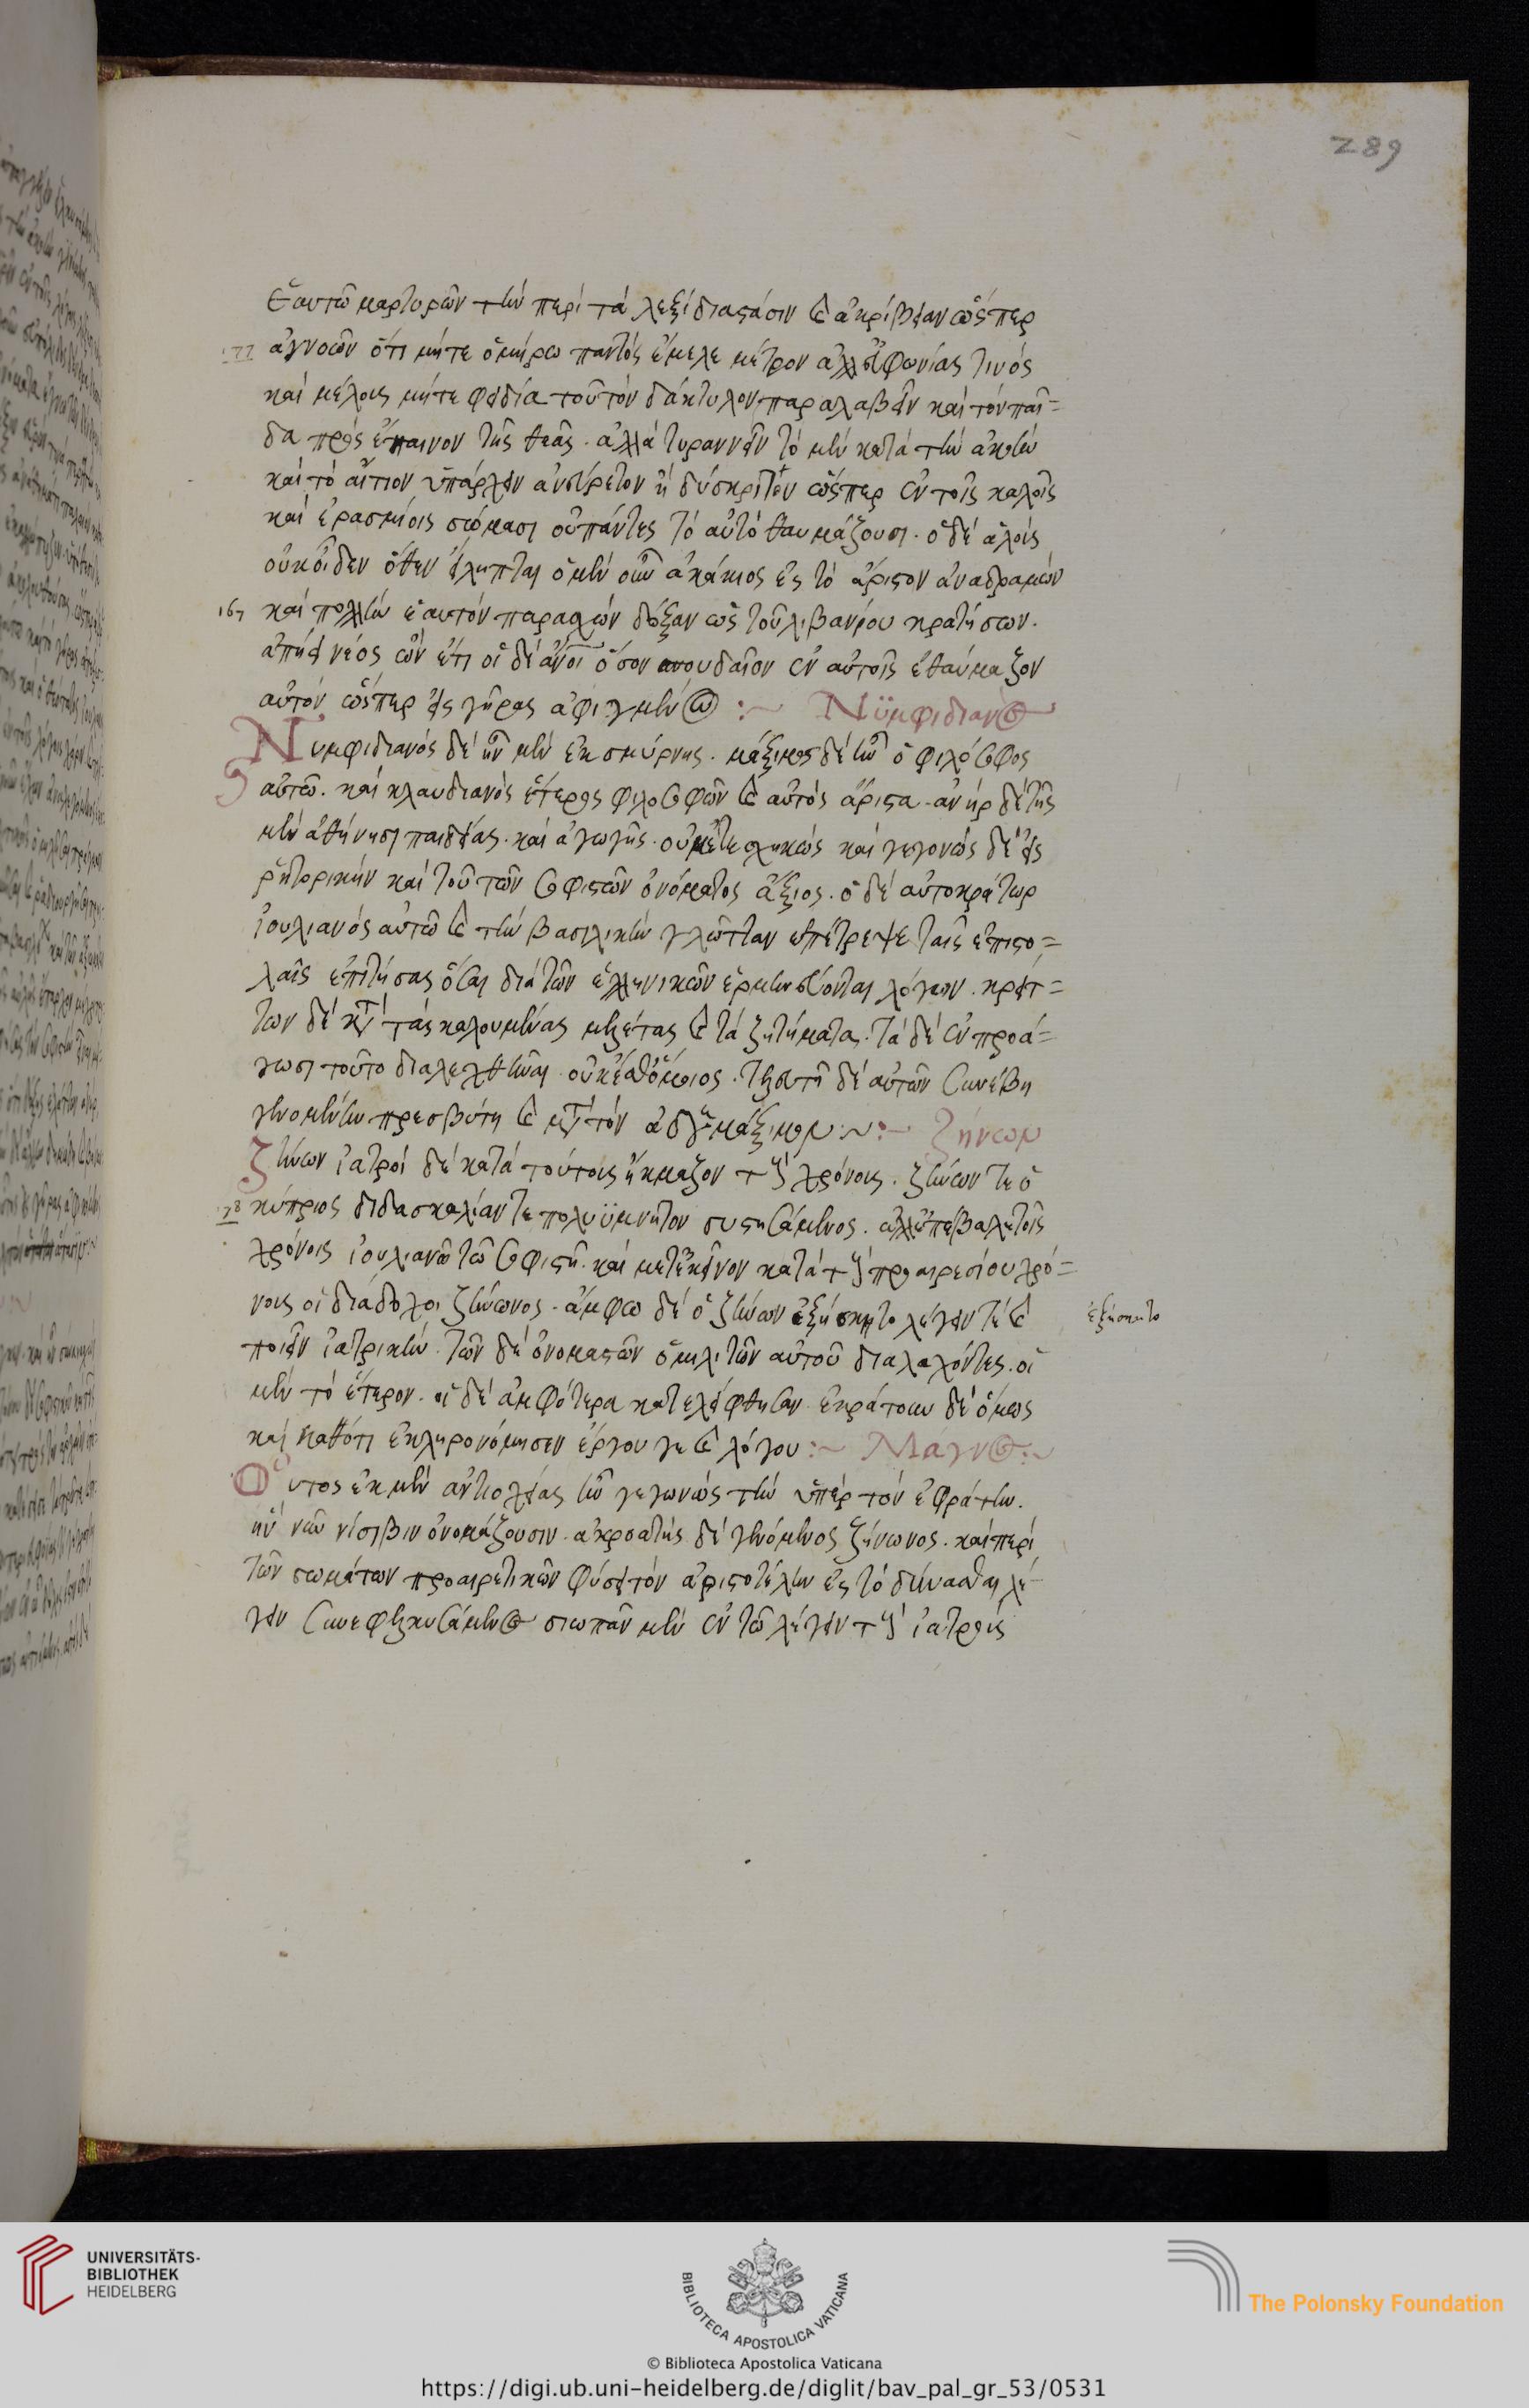 289
ἑαυτῶ μαρτυρῶν τὴν περὶ τὰ λεξίδια στάσιν καὶ ἀκρίβειαν ὥσπερ
177 ἀγνοῶν ὅτι μήτε ὁμήρω παντὸς ἔμελε μέτρου ἀλλ' εὐφωνίας τινὸς
καὶ μέλους μήτε φειδία τοῦ τὸν δάκτυλον παραλαβεῖν καὶ τὸν πόδα
πρὸς ἔπαινον τῆς θεᾶς. ἀλλὰ τυραννεῖν τὸ μὲν κατὰ τὴν ἀκοὴν
καὶ τὸ αἴτιον ὑπάρχειν ἀνεύρετον ἢ δύσκριτον ὥσπερ ἐν τοῖς καλοῖς
καὶ ἐρασμίοις σώμασι οὐ πάντες τὸ αὐτὸ θαυμάζουσι. ὁ δὲ ἁλοὺς
οὐκ οἶδεν ὅθεν εἴληπται ὁ μὲν οὖν ἀκάκιος ἐς τὸ ἄριστον ἀναδραμὼν
167 καὶ πολλὴν ἑαυτὸν παρασχὼν δόξαν ὡς τοῦ λιβανίου κρατήσων.
ἀπήει νέος ὢν ἔτι οἱ δὲ ἄνοι ὅσον σπουδαῖον ἐν αὐτοῖς ἐθαύμαζον
αὐτὸν ὥσπερ εἰς γῆρας ἀφιγμένον :~ Νϋμφιδιανός
Νυμφιδιανὸς δὲ ἦν μὲν ἐκ σμύρνης. μάξιμος δὲ ἦν ὁ φιλόσοφος
αὐτῶ. καὶ κλαυδιανὸς ἕτερος φιλοσοφῶν καὶ αὐτὸς ἄριστα. ἀνὴρ δὲ τῆς
μὲν ἀθήνησι παιδείας. καὶ ἀγωγῆς. οὐ μετεσχηκὼς καὶ γεγονὼς δὲ εἰς
ῥητορικὴν καὶ τοῦ τῶν σοφιστῶν ὀνόματος ἄξιος. ὁ δὲ αὐτοκράτωρ
ἰουλιανὸς αὐτῶ καὶ τὴν βασιλικὴν γλῶτταν ἐπέτρεψε ταῖς ἐπιστο=
λαῖς ἐπιστήσας ὅσαι διὰ τῶν ἑλληνικῶν ἑρμηνεύονται λόγων. κρειτ=
των δὲ κατὰ τὰς καλουμένας μελέτας καὶ τὰ ζητήματα. τὰ δὲ ἐν προά=
γωσι τοῦτο διαλεχθῆναι οὐκέθ' ὅμοιος. τελευτὴ δὲ αὐτῶν συνέβη
γενομένων πρεσβύτη καὶ μετὰ τὸν ἀδελφὸν μάξιμον :~ ζήνων
Ζήνων ἰατροὶ δὲ κατὰ τούτους ἤκμαζον τοὺς χρόνους. ζήνων τε ὁ
78 κύπριος διδασκαλίαν τε πολυΰμνητον συστησάμενος. ἀλλ' ἐπέβαλε τοῖς
χρόνοις ἰουλιανῶ τῶ σοφιστῆ. καὶ μετ' ἐκεῖνον κατὰ τοὺς προαιρεσίου χρό=
νους οἱ διάδοχοι ζήνωνος. ἄμφω δὲ ὁ ζήνων ἐξήσκητο λέγειν τὲ καὶ
ἐξήσκητο
ποιεῖν ἰατρικήν. τῶν δὲ ὀνομαστῶν ὁμιλητῶν αὐτοῦ διαλαχόντες. οἱ
μὲν τὸ ἕτερον. οἱ δὲ ἀμφότερα κατελείφθησαν ἐκράτουν δὲ ὅμως
καὶ καθότι ἐκληρονόμησεν ἔργου γε καὶ λόγου :~ Μάγνος :~
Οὗτος ἐκ μὲν ἀντιοχείας ἦν γεγονὼς τὴν ὑπὲρ τὸν ἐφράτην.
ἣν νῦν νίσιβιν ὀνομάζουσιν. ἀκροατὴς δὲ γενόμενος ζήνωνος. καὶ περὶ
τῶν σωμάτων προαιρετικῶν φύσει τὸν ἀριστοτέλην ἐς τὸ δύνασθαι λέ-
γειν συνεφελκυσάμενος σιωπᾶν μὲν ἐν τῶ λέγειν τοὺς ἰατροὺς
UNIVERSITÄTS-
BIBLIOTHEK
HEIDELBERG
BIBLIOTECA APOSTOLICA VATICANA
The Polonsky Foundation
© Biblioteca Apostolica Vaticana
https://digi.ub.uni-heidelberg.de/diglit/bav_pal_gr_53/0531